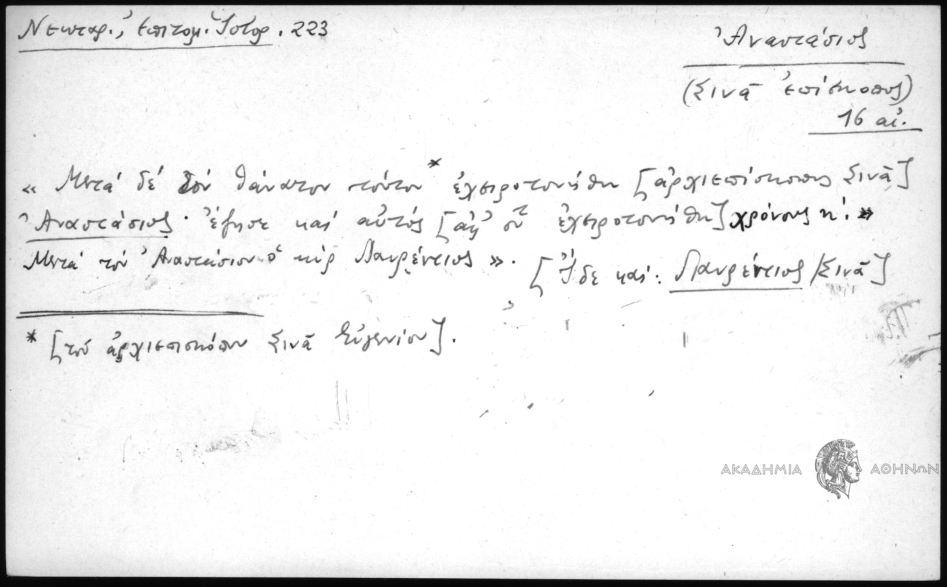 Νεκταρ., Ἐπιτομ. Ἱστορ. 223
Ἀναστάσιος
(Σινᾶ ἐπίσκοπος)
16 αἰ.
« Μετά δέ τόν θάνατον τούτου* ἐχειροτονήθη [ἀρχιεπίσκοπος Σινᾶ]
Ἀναστάσιος· ἔζησε καί αὐτός [ἀφ' οὗ ἐχειροτονήθη] χρόνους κ'. »
Μετά τόν Ἀναστάσιον ὁ κύρ Λαυρέντιος ». [Ἴδε καί: Λαυρέντιος /Σινᾶ]
* [τοῦ ἀρχιεπισκόπου Σινᾶ Εὐγενίου].
ΑΚΑΔΗΜΙΑ ΑΘΗΝΩΝ